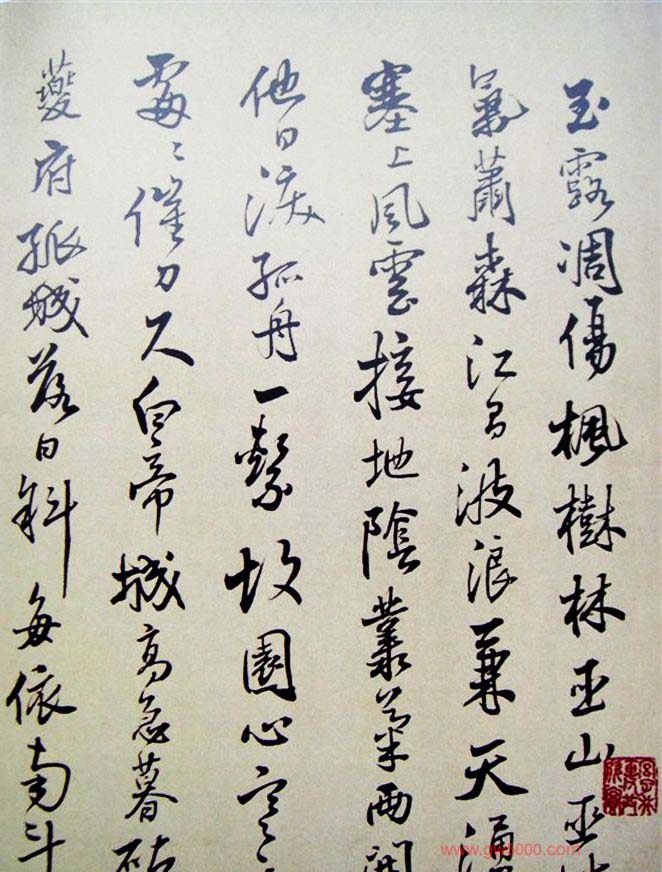 玉露凋傷楓樹林巫山巫
氣蕭森江間波浪兼天湧
塞上風雲接地陰叢菊兩開
他日淚孤舟一繫故園心寒
處〻催刀尺白帝城高急暮砧
夔府孤城落日斜每依南斗